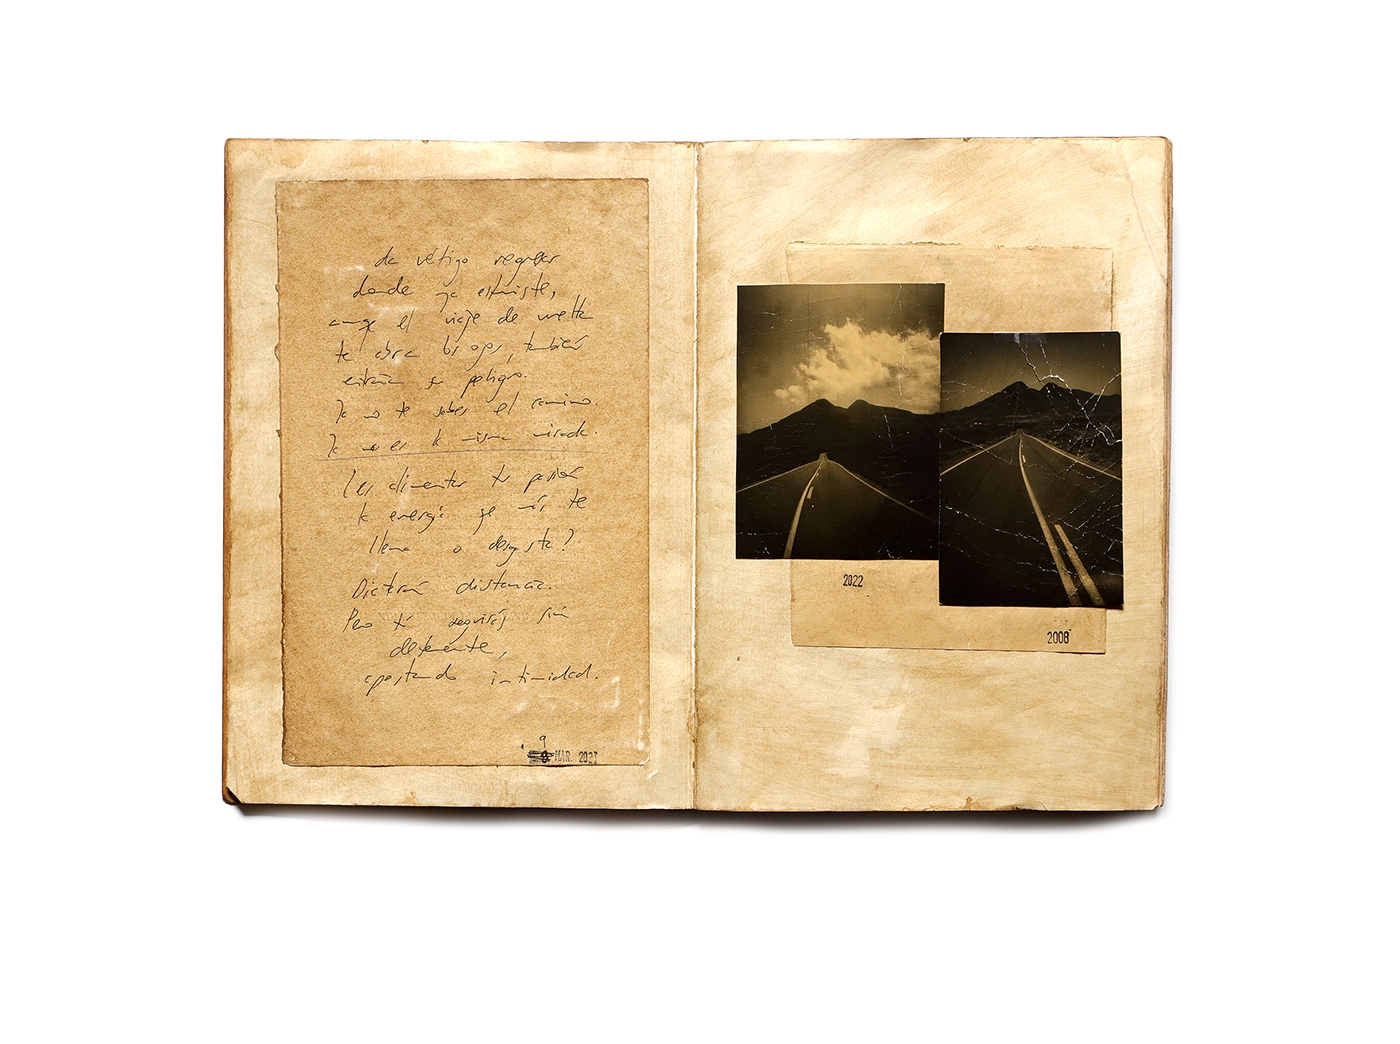 da vértigo regresar
donde ya estuviste,
aunque el viaje de vuelta
te abra los ojos, también
entraña su peligro.
Ya no te sabes el camino.
Ya no es la misma mirada.
la energía que más te
llena o desgasta?
Dictará distancia.
Pero tú seguirás sin
detenerte,
apostando intimidad.
9 MAR. 2023
2022
2008